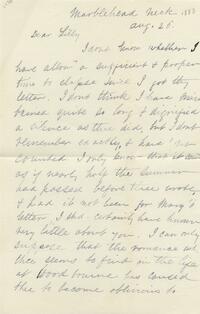 Marblehead Neck 1883
Aug. 25.
Dear Lilly
I dont know whether I
have allow'd a sufficient & proper
time to elapse since I got thy
letter. I dont think I have
quite so long & dignified
a silence as thee did, but I dont
remember exactly, & have not
counted. I only know that it
as if nearly half the summer
had passed before thee wrote,
& had it not been for Mary's
letter, I shd. certainly have known
very little about you. I can only
suppose that the romance wh.
thee seems to find in the life
at Woodbourne has caused
thee to become oblivious to